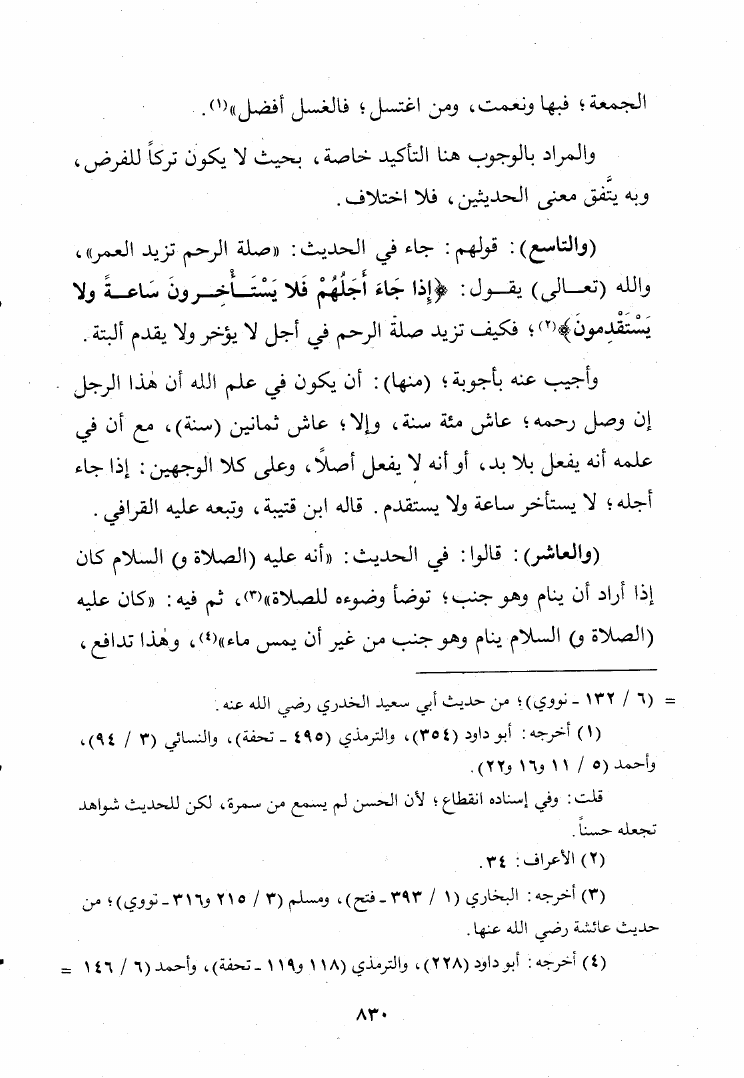 الجمعة؛ فبها ونعمت، ومن اغتسل؛ فالغسل أفضل»(١).
والمراد بالوجوب هنا التأكيد خاصة، بحيث لا يكون تركاً للفرض،
وبه يتَّفق معنى الحديثين، فلا اختلاف.
(والتاسع): قولهم: جاء في الحديث: «صلة الرحم تزيد العمر»،
والله (تعـالى) يقـول: ﴿إِذا جَاءَ أَجَلُهُمْ فَلا يَسْتَـأْخِـرونَ سَاعـةً ولا
يَسْتَقْدِمونَ﴾(٢)؛ فكيف تزيد صلة الرحم في أجل لا يؤخر ولا يقدم ألبتة.
وأجيب عنه بأجوبة؛ (منها): أن يكون في علم الله أن هٰذا الرجل
إن وصل رحمه؛ عاش مئة سنة، وإلا؛ عاش ثمانين (سنة)، مع أن في
علمه أنه يفعل بلا بد، أو أنه لا يفعل أصلًا، وعلى كلا الوجهين: إذا جاء
أجله؛ لا يستأخر ساعة ولا يستقدم. قاله ابن قتيبة، وتبعه عليه القرافي.
(والعاشر): قالوا: في الحديث: «أنه عليه (الصلاة و) السلام كان
إذا أراد أن ينام وهو جنب؛ توضأ وضوءه للصلاة»(٣)، ثم فيه: «كان عليه
(الصلاة و) السلام ينام وهو جنب من غير أن يمس ماء»(٤)، وهٰذا تدافع،
= (٦ / ١٣٢ ـ نووي)؛ من حديث أبي سعيد الخدري رضي الله عنه.
(١) أخرجه: أبو داود (٣٥٤)، والترمذي (٤٩٥ ـ تحفة)، والنسائي (٣ / ٩٤)،
وأحمد (٥ / ١١ و١٦ و٢٢).
قلت: وفي إسناده انقطاع؛ لأن الحسن لم يسمع من سمرة، لكن للحديث شواهد
تجعله حسناً.
(٢) الأعراف: ٣٤.
(٣) أخرجه: البخاري (١ / ٣٩٣ ـ فتح)، ومسلم (٣ / ٢١٥ و٣١٦ ـ نووي)؛ من
حديث عائشة رضي الله عنها.
(٤) أخرجه: أبو داود (٢٢٨)، والترمذي (١١٨ و١١٩ ـ تحفة)، وأحمد (٦ / ١٤٦ =
٨٣٠